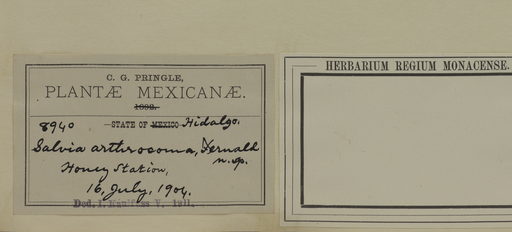 C. G. PRINGLE,
PLANTÆ MEXICANÆ.
1892.
8940 —STATE OF MEXICO Hidalgo.
Salvia arthrocoma, Fernald
n. sp.
Honey Station,
16, July, 1904.
Ded. I. V. 1911.
HERBARIUM REGIUM MONACENSE.